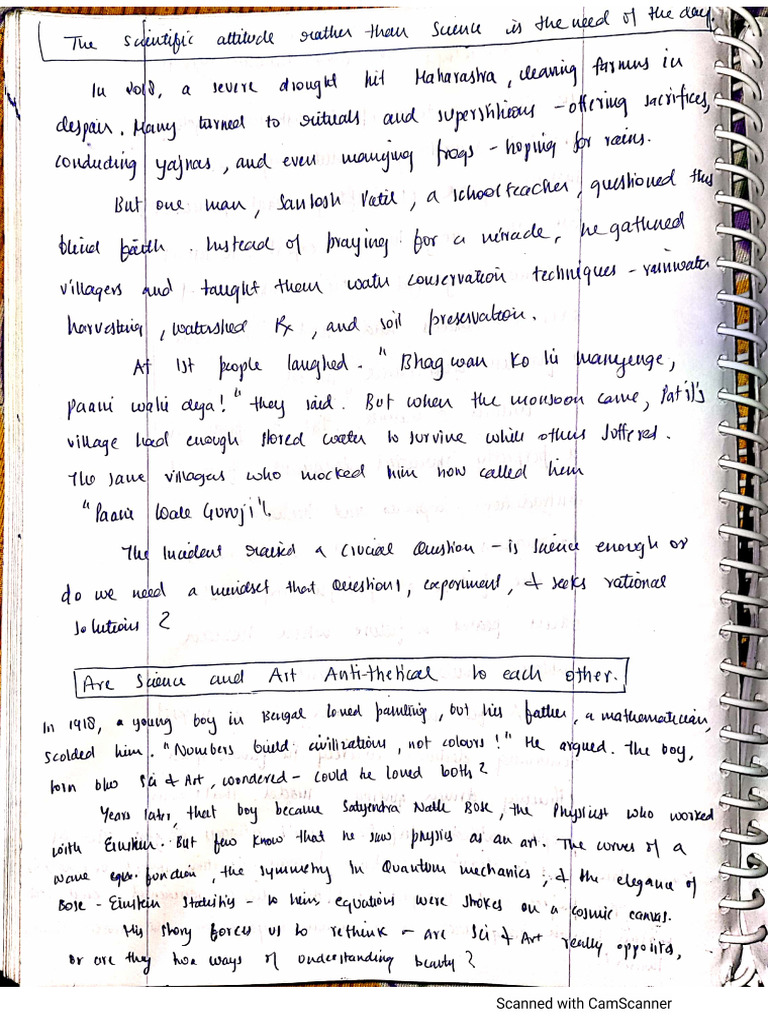 The Scientific attitude rather than Science is the need of the day.
In 2018, a severe drought hit Maharastra, leaving farmers in
despair. Many turned to rituals and superstitions - offering sacrifices,
conducting yajnas, and even marrying frogs - hoping for rains.
But one man, Santosh Patil, a school teacher, questioned this
blind faith. Instead of praying for a miracle, he gathered
villagers and taught them water conservation techniques - rainwater
harvesting, watershed Rx, and soil preservation.
At 1st people laughed. "Bhagwan ko hi manyenge,
paani wahi dega!" they said. But when the monsoon came, Patil's
village had enough stored water to survive while others suffered.
The same villagers who mocked him now called him
"Paani Wale Guruji".
The incident raised a crucial question - is science enough or
do we need a mindset that questions, experiment, & seeks rational
solutions?
Are Science and Art Anti-thetical to each other.
In 1918, a young boy in Bengal loved painting, but his father, a mathematician,
scolded him. "Numbers build civilizations, not colours!" He argued. The boy,
torn b/w Sci & Art, wondered - could he loved both?
Years later, that boy became Satyendra Nath Bose, the Physicist who worked
with Einstein. But few know that he saw physics as an art. The curves of a
wave function, the symmetry in Quantum mechanics, & the elegance of
Bose - Einstein Statistics - to him, equations were strokes on a cosmic canvas.
His story forces us to rethink - are Sci & Art really opposites,
or are they two ways of understanding beauty?
Scanned with CamScanner